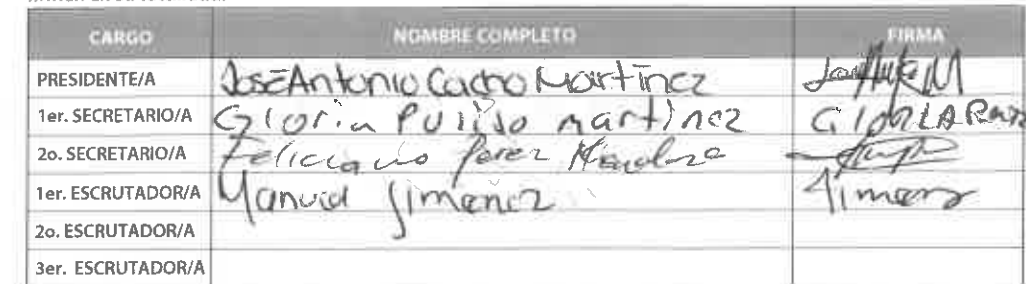 CARGO NOMBRE COMPLETO FIRMA
PRESIDENTE/A José Antonio Cacho Martínez
1er. SECRETARIO/A Gloria Pulido martinez
2o. SECRETARIO/A Feliciano Perez
1er. ESCRUTADOR/A Manuel Jimenez Jimenez
2o. ESCRUTADOR/A
3er. ESCRUTADOR/A